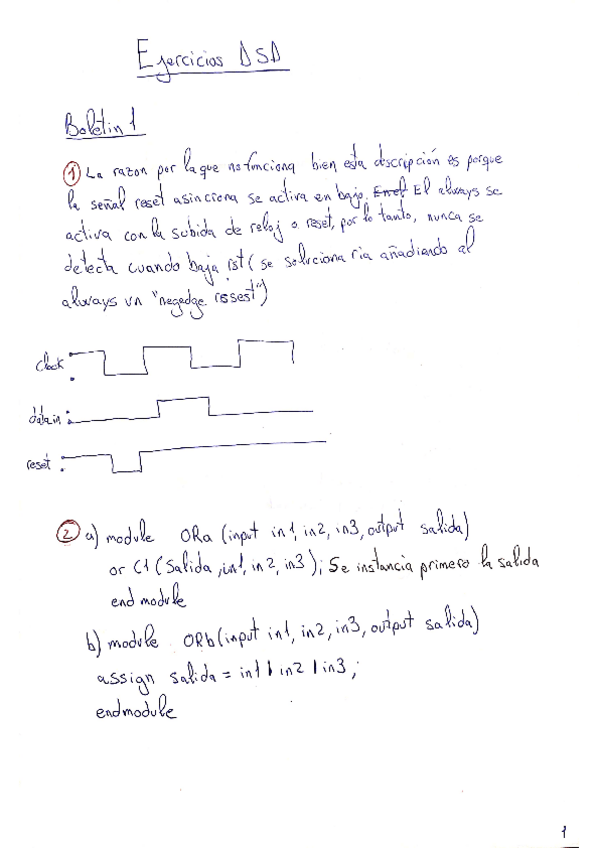 Ejercicios DSD
Boletin 1
① La razon por la que no funciona bien esta descripción es porque
la señal reset asincrona se activa en bajo. En el El always se
activa con la subida de reloj o reset, por lo tanto, nunca se
detecta cuando baja rst (se soluciona ria añadiendo al
always un "negedge resset")
clock
data in
reset
② a) module ORa (input in1, in2, in3, output salida)
or C1 (Salida, in1, in2, in3); Se instancia primero la salida
end module
b) module ORb (input in1, in2, in3, output salida)
assign salida = in1 | in2 | in3;
endmodule
1